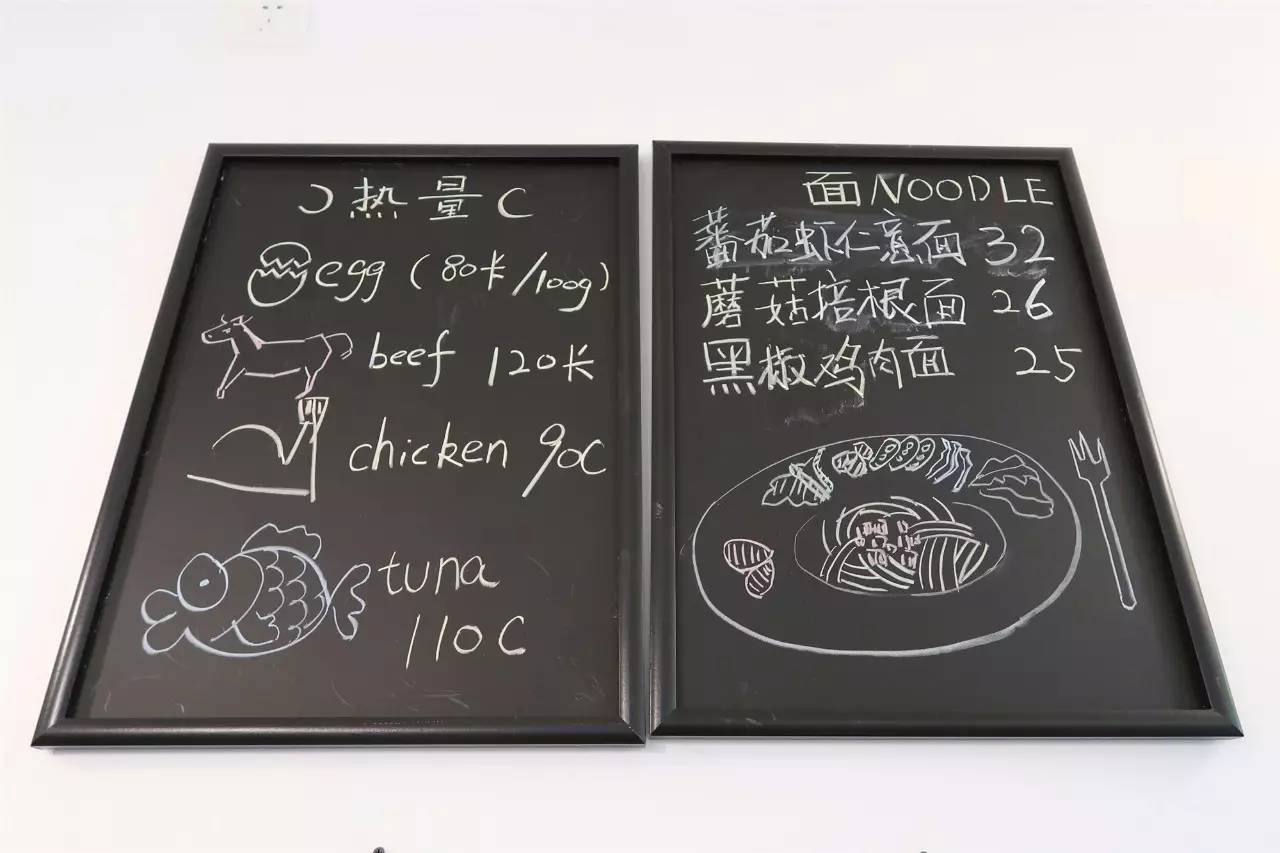 热量
egg (80卡/100g)
beef 120卡
chicken 90C
tuna
110C
面NOODLE
蕃茄虾仁意面 32
蘑菇培根面 26
黑椒鸡肉面 25